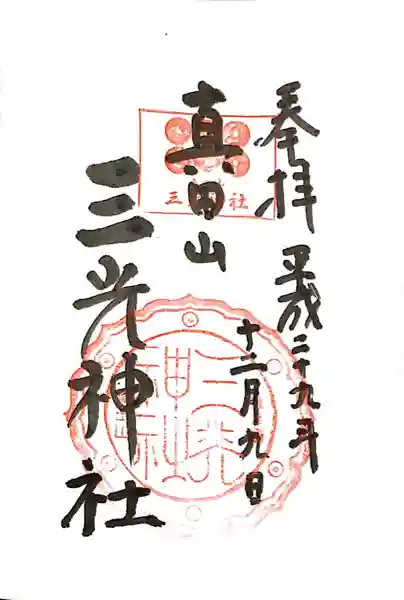 奉拝
平成二十九年
十二月九日
真田山
三光神社
三光神社